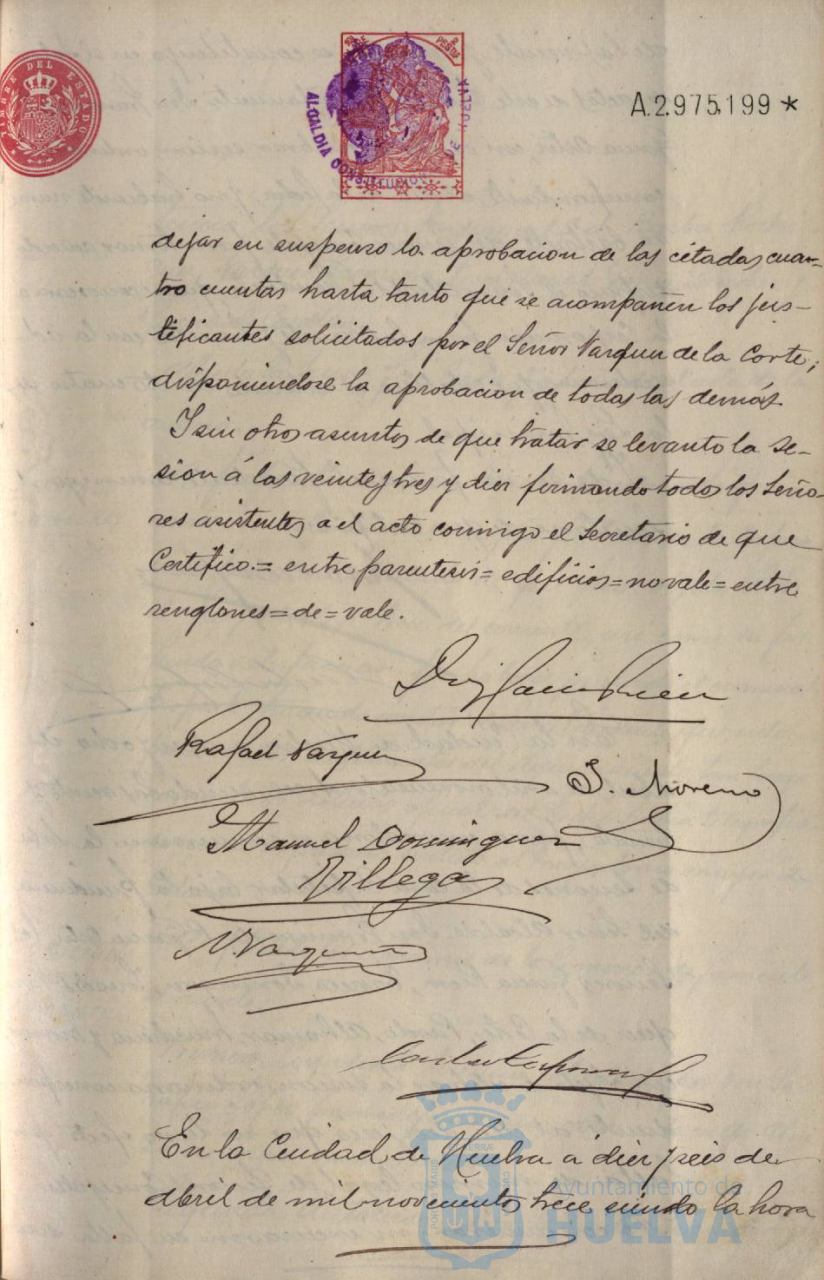 TIMBRE DEL ESTADO
2 PESETAS
ALCALDIA CONSTITUCIONAL DE HUELVA
A.2.975,199 *
dejar en suspenso la aprobacion de las citadas cua-
tro cuentas hasta tanto que se acompañen los jus-
tificantes solicitados por el Señor Vazquez de la Corte;
disponiendose la aprobacion de todas las demás.
Y sin otros asuntos de que tratar se levanto la se-
sion á las veinte y tres y diez firmando todos los Seño-
res asistentes a el acto conmigo el Secretario de que
Certifico.= entre parentesis= edificios= no vale= entre
renglones= de= vale.
Rafael Vazquez
J. Moreno
Manuel Dominguez
Villegas
N. Vazquez
En la Ciudad de Huelva á diez y seis de
Abril de mil novecientos trece siendo la hora
Ayuntamiento de
HUELVA